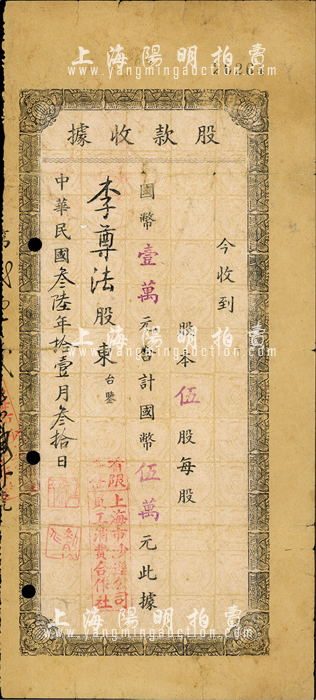 上海陽明拍賣
www.yangmingauction.com
股款收據
今收到
股本伍股每股
國幣壹萬元合計國幣伍萬元此據
李尊法股東台鑒
中華民國叁陸年拾壹月叁拾日
有限上海市沙
員工消費合作社
上海陽明拍賣
www.yangmingauction.com